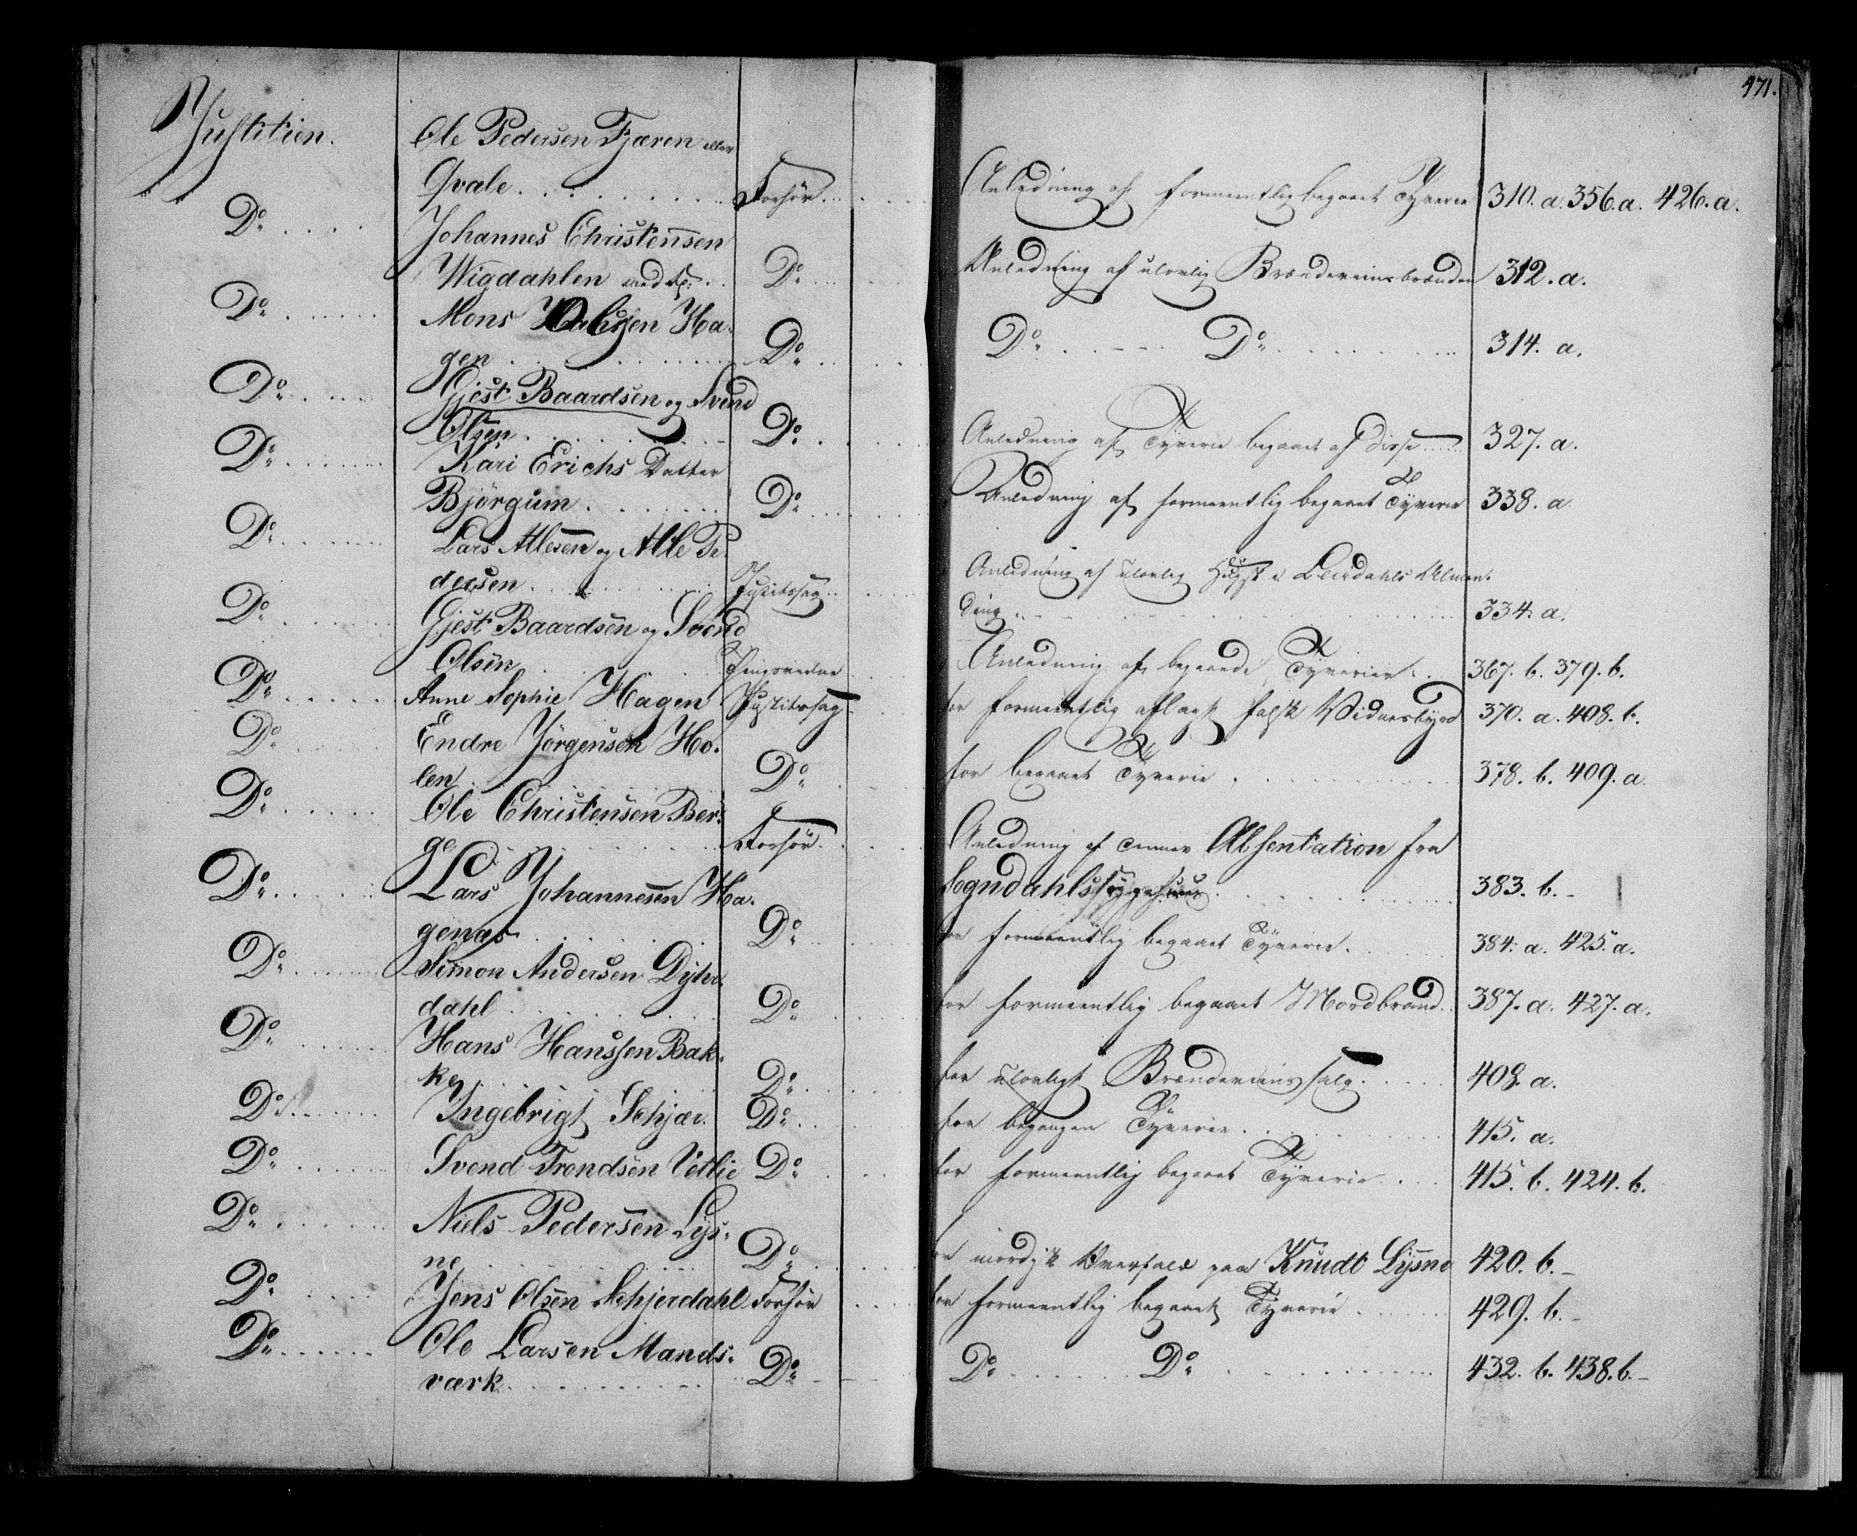 471.
Justitien. Ole Pedersen Fjæren eller
Qvale. Forhör Anledning af formeentlig begaaet Tyverie 310. a. 356. a. 426. a.
Do. Johannes Christensen
Wigdahlen med fl. Do. Anledning af ulovlig Brændeviinsbrænden 312. a.
Do. Mons Olssen Ha-
gen Do. Do. Do. 314. a.
Do. Gjest Baardsen og Svend
Olsen Do. Anledning af Tyverie begaaet af disse 327. a.
Do. Kari Erichs Datter
Bjórgum Do. Anledning af formeentlig begaaet Tyverie 338. a
Do. Lars Atlesen og Atle Pe-
dersen Justitssag Anledning af ulovlig Hugst i Leirdahls Almen-
ding 334. a.
Do. Gjest Baardsen og Svend
Olsen Thingsvidne Anledning af begaaede Tyverier 367. b. 379. b.
Do. Anne Sophie Hagen Justitssag for formeentlig aflagt falsk Vidnesbyrd 370. a. 408. b.
Do. Endre Jörgensen Ho-
len Do. for begaaet Tyverie 378. b. 409. a.
Do. Ole Christensen Ber-
ge Forhör Anledning af Absentation fra
Sogndahls Sygehuus 383. b.
Do. Lars Johannesen Ha-
genæs Do. for formeentlig begaaet Tyverie 384. a. 425. a.
Do. Simon Andersen
dahl Do. for formeentlig begaaet Mordbrand 387. a. 427. a.
Do. Hans Hanssen Bak-
ke Do. for ulovligt Brændeviinssalg 408. a.
Do. Ingebrigt Schjær Do. for begangen Tyverie 415. a.
Do. Svend Trondsen Vetlie Do. for formeentlig begaaet Tyverie 415. b. 424. b.
Do. Niels Pedersen Lys-
ne Do. for mordisk Overfald paa Knudt Lysne 420. b.
Do. Jens Olsen Schjerdahl Forhör for formeentlig begaaet Tyverie 429. b.
Do. Ole Larsen Mands-
værk Do. Do. Do. 432. b. 438. b.